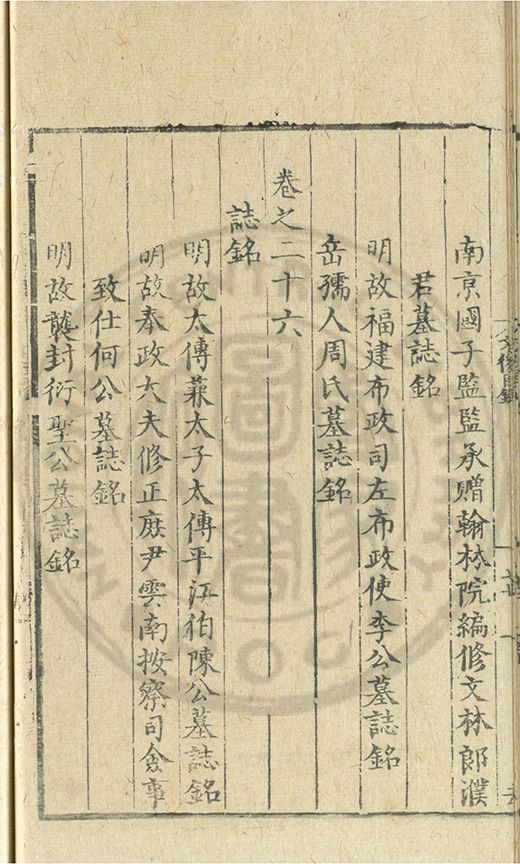 南京國子監監丞贈翰林院編修文林郎濮
君墓誌銘
明故福建布政司左布政使李公墓誌銘
岳孺人周氏墓誌銘
卷之二十六
誌銘
明故太傅兼太子太傅平江伯陳公墓誌銘
明故奉政大夫修正庶尹雲南按察司僉事
致仕何公墓誌銘
明故襲封衍聖公墓誌銘